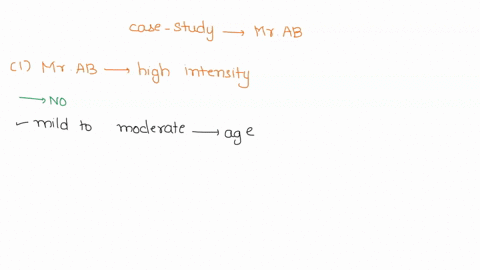 case-study → Mr. AB
(1) Mr AB → high intensity
→ NO
- mild to moderate → age